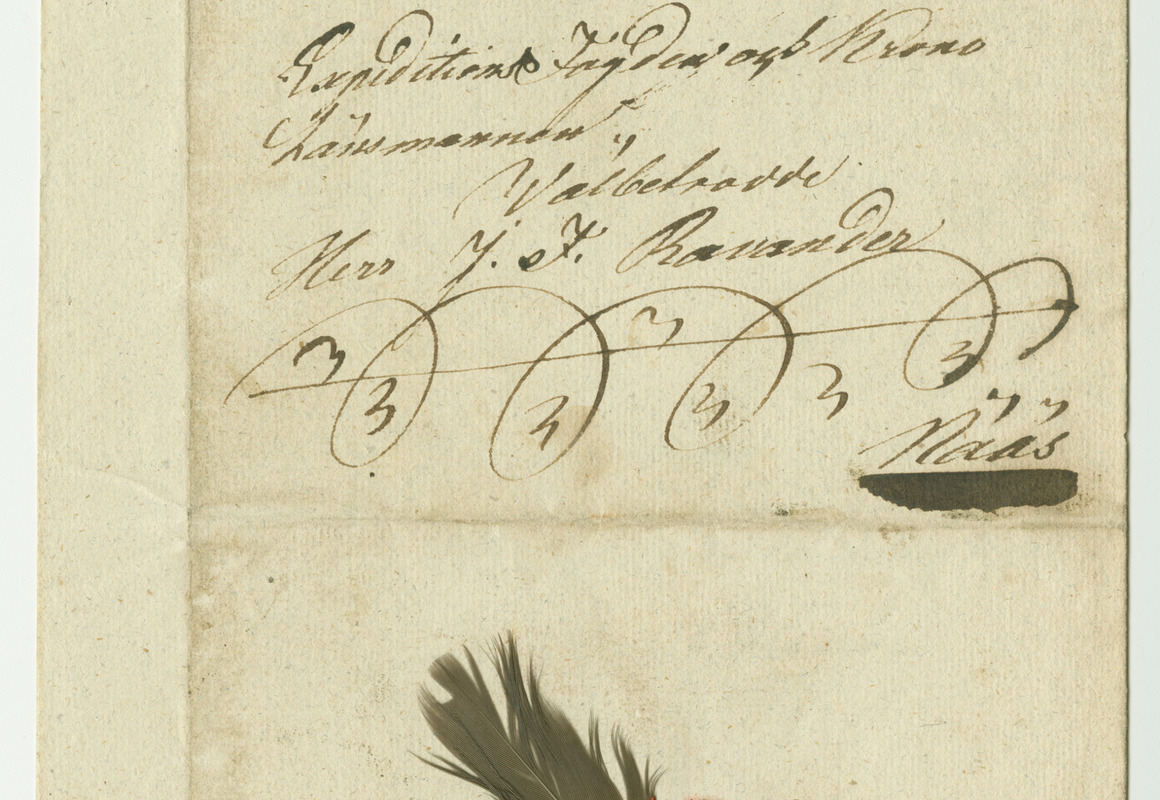 Expeditions Fogden och Krono
Länsmannen„
Wälbetrodde
Herr J. F. Ravander
Nääs